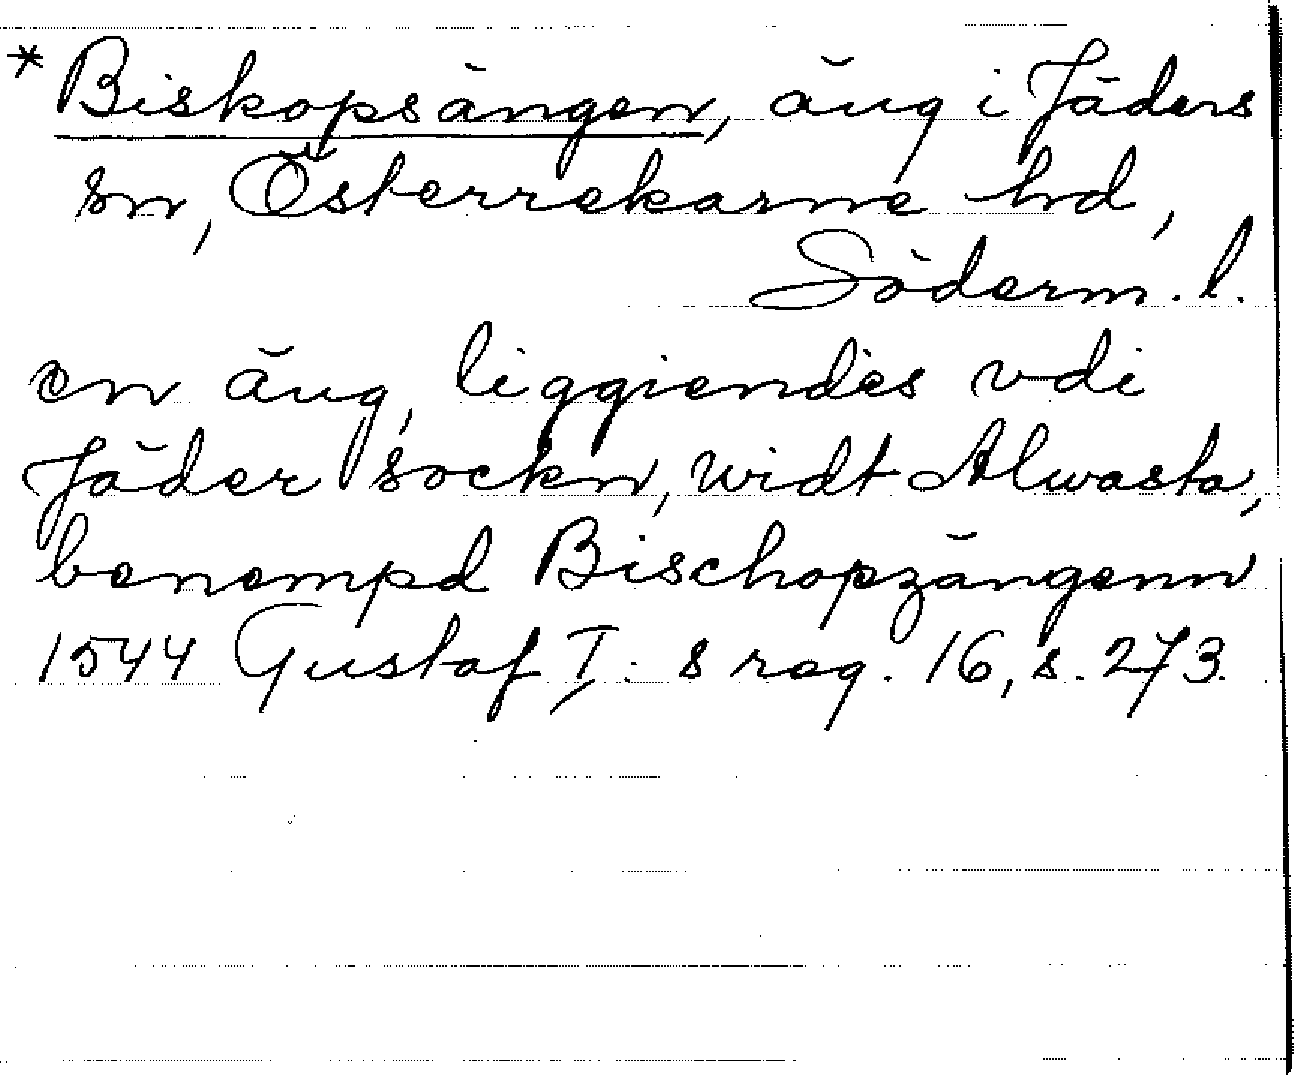 * Biskopsängen, äng i Jäders
sn, Österrekarne hd,
Söderm. l.
en äng, liggiendes vdi
Jäder sockn, widt Alwasta,
benempd Bischopzängenn
1544 Gustaf I:s reg. 16, s. 273.